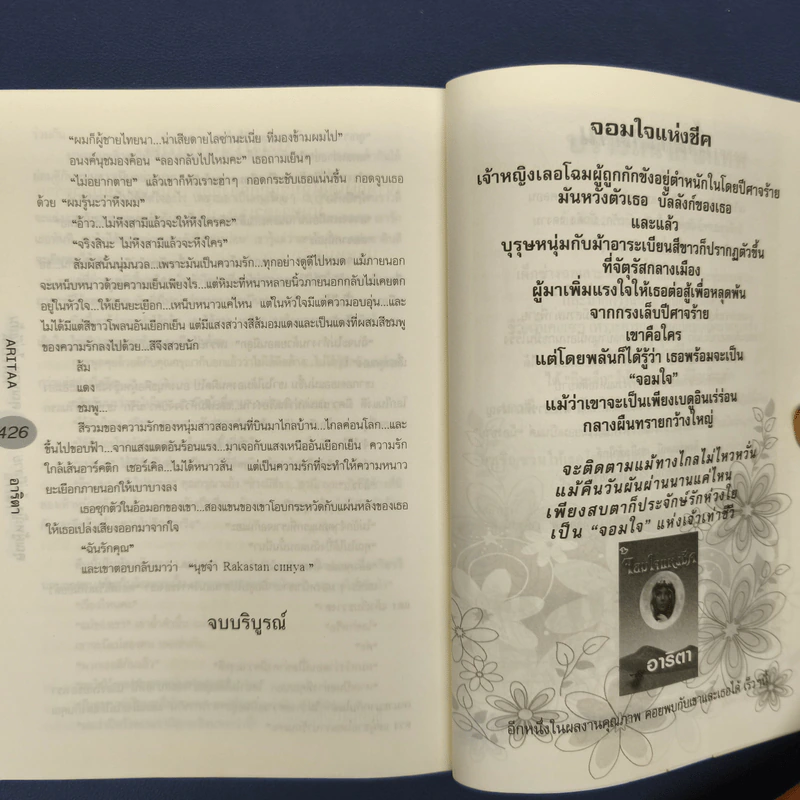 "ผมก็ผู้ชายไทยนา...น่าเสียดายไลซ่านะเนี่ย ที่มองข้ามผมไป"
อนงค์นุชมองค้อน "ลองกลับไปไหมคะ" เธอถามเย็นๆ
"ไม่อยากตาย" แล้วเขาก็หัวเราะฮ่าๆ กอดกระชับเธอแน่นขึ้น กอดจูบเธอ
ด้วย "ผมรู้นะว่าหึงผม"
"อ้าว...ไม่หึงสามีแล้วจะให้หึงใครคะ"
"จริงสินะ ไม่หึงสามีแล้วจะหึงใคร"
สัมผัสนั้นนุ่มนวล...เพราะมันเป็นความรัก...ทุกอย่างดูดีไปหมด แม้ภายนอก
จะเหน็บหนาวด้วยความเย็นเพียงไร...แต่หิมะที่หนาหลายนิ้วภายนอกกลับไม่เคยตก
อยู่ในหัวใจ...ให้เย็นยะเยือก...เหน็บหนาวแค่ไหน แต่ในหัวใจมีแต่ความอบอุ่น...และ
ไม่ได้มีแต่สีขาวโพลนอันเยือกเย็น แต่มีแสงสว่างสีส้มอมแดงและเป็นแดงที่ผสมสีชมพู
ของความรักลงไปด้วย...สีจึงสวยนัก
ส้ม
แดง
ชมพู...
สีรวมของความรักของหนุ่มสาวสองคนที่บินมาไกลบ้าน...ไกลค่อนโลก...และ
ขึ้นไปขอบฟ้า...จากแสงแดดอันร้อนแรง...มาเจอกับแสงเหนืออันเยือกเย็น ความรัก
ใกล้เส้นอาร์คติก เซอร์เคิล...ไม่ได้หนาวสั่น แต่เป็นความรักที่จะทำให้ความหนาว
ยะเยือกภายนอกให้เบาบางลง
เธอซุกตัวในอ้อมอกของเขา...สองแขนของเขาโอบกระหวัดกับแผ่นหลังของเธอ
ให้เธอเปล่งเสียงออกมาจากใจ
"ฉันรักคุณ"
และเขาตอบกลับมาว่า "นุชจ๋า Rakastan
จบบริบูรณ์
ARITAA
426
อาริตา
จอมใจแห่งชีค
เจ้าหญิงเลอโฉมผู้ถูกกักขังอยู่ตำหนักในโดยปีศาจร้าย
มันหวังตัวเธอ บัลลังก์ของเธอ
และแล้ว
บุรุษหนุ่มกับม้าอาระเบียนสีขาวก็ปรากฏตัวขึ้น
ที่จัตุรัสกลางเมือง
ผู้มาเพิ่มแรงใจให้เธอต่อสู้เพื่อหลุดพ้น
จากกรงเล็บปีศาจร้าย
เขาคือใคร
แต่โดยพลันก็ได้รู้ว่า เธอพร้อมจะเป็น
"จอมใจ"
แม้ว่าเขาจะเป็นเพียงเบดูอินเร่ร่อน
กลางผืนทรายกว้างใหญ่
จะติดตามแม้ทางไกลไม่ไหวหวั่น
แม้คืนวันผันผ่านนานแค่ไหน
เพียงสบตาก็ประจักษ์รักห่วงใย
เป็น "จอมใจ" แห่งเจ้าเท่าชีวี
จอมใจแห่งชีค
อาริตา
อีกหนึ่งในผลงานคุณภาพ คอยพบกับเขาและเธอได้ เร็วๆ นี้